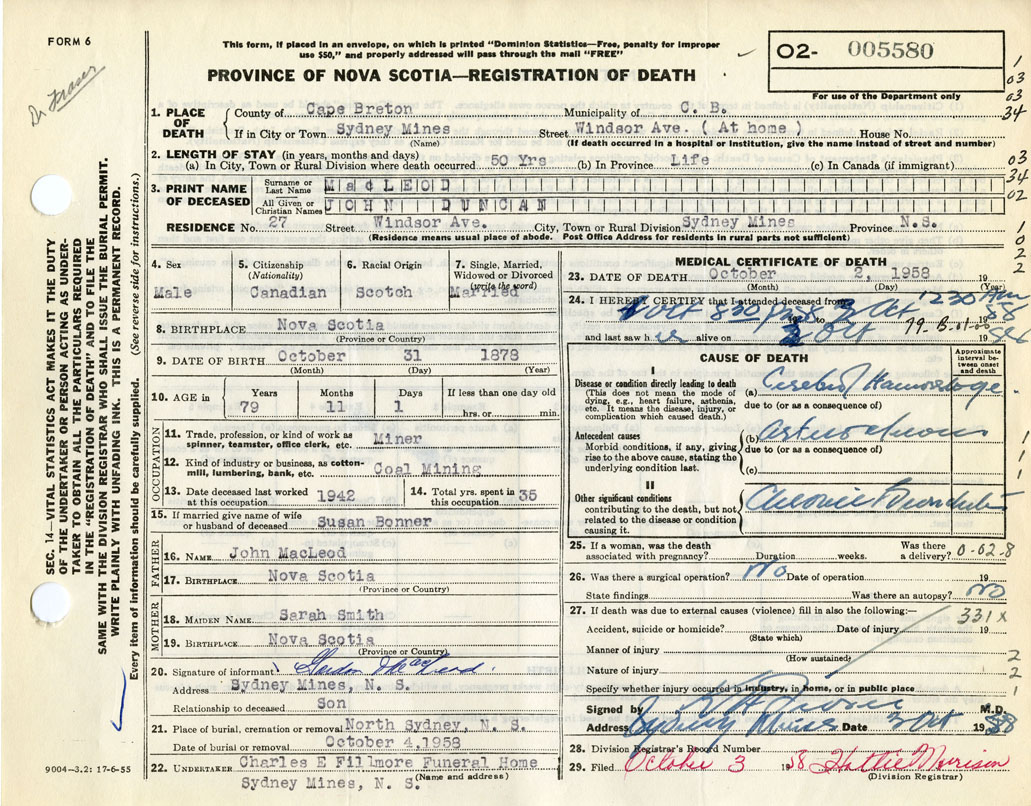 FORM 6
Dr Fraser
This form, if placed in an envelope, on which is printed "Dominion Statistics—Free, penalty for improper
use $50," and properly addressed will pass through the mail "FREE"
PROVINCE OF NOVA SCOTIA—REGISTRATION OF DEATH
O2- 005580
For use of the Department only
1
03
03
34
03
34
02
1
0
2
2
1
1
1
2
2
1
SEC. 14—VITAL STATISTICS ACT MAKES IT THE DUTY
OF THE UNDERTAKER OR PERSON ACTING AS UNDER-
TAKER TO OBTAIN ALL THE PARTICULARS REQUIRED
IN THE "REGISTRATION OF DEATH" AND TO FILE THE
SAME WITH THE DIVISION REGISTRAR WHO SHALL ISSUE THE BURIAL PERMIT.
WRITE PLAINLY WITH UNFADING INK. THIS IS A PERMANENT RECORD.
Every item of information should be carefully supplied. (See reverse side for instructions.)
1. PLACE OF DEATH
County of Cape Breton Municipality of C. B.
If in City or Town Sydney Mines Street Windsor Ave. ( At home ) House No.
(Name) (If death occurred in a hospital or Institution, give the name instead of street and number)
2. LENGTH OF STAY (in years, months and days)
(a) In City, Town or Rural Division where death occurred 50 Yrs (b) In Province Life (c) In Canada (if immigrant)
3. PRINT NAME OF DECEASED
Surname or Last Name MacLEOD
All Given or Christian Names JOHN DUNCAN
RESIDENCE No. 27 Street Windsor Ave. City, Town or Rural Division Sydney Mines Province N.S.
(Residence means usual place of abode. Post Office Address for residents in rural parts not sufficient)
4. Sex Male
5. Citizenship (Nationality) Canadian
6. Racial Origin Scotch
7. Single, Married, Widowed or Divorced (write the word) Married
8. BIRTHPLACE Nova Scotia
(Province or Country)
9. DATE OF BIRTH October 31 1878
(Month) (Day) (Year)
10. AGE in Years 79 Months 11 Days 1 If less than one day hrs. or min.
OCCUPATION
11. Trade, profession, or kind of work as spinner, teamster, office clerk, etc. Miner
12. Kind of industry or business, as cotton-mill, lumbering, bank, etc. Coal Mining
13. Date deceased last worked at this occupation 1942
14. Total yrs. spent in this occupation 35
15. If married give name of wife or husband of deceased Susan Bonner
FATHER
16. NAME John MacLeod
17. BIRTHPLACE Nova Scotia
(Province or Country)
MOTHER
18. MAIDEN NAME Sarah Smith
19. BIRTHPLACE Nova Scotia
(Province or Country)
20. Signature of informant MacLeod
Address Sydney Mines, N. S.
Relationship to deceased Son
21. Place of burial, cremation or removal North Sydney, N. S.
Date of burial or removal October 4,1958
22. UNDERTAKER Charles E Fillmore Funeral Home
Sydney Mines, N. S. (Name and address)
9004—3.2: 17-6-55
MEDICAL CERTIFICATE OF DEATH
23. DATE OF DEATH October 2, 1958 19
(Month) (Day) (Year)
24. I HEREBY CERTIFY that I attended deceased from
Oct 8 30 to 3 Oct 12 30 AM 58
and last saw h alive on Oct
79-B-01-00
CAUSE OF DEATH
Approximate interval between onset and death
I
Disease or condition directly leading to death
(This does not mean the mode of dying, e.g., heart failure, asthenia, etc. It means the disease, injury, or complication which caused death.)
(a) Cerebral Haemorrhage
due to (or as a consequence of)
Antecedent causes
Morbid conditions, if any, giving rise to the above cause, stating the underlying condition last.
(b)
due to (or as a consequence of)
(c)
II
Other significant conditions
contributing to the death, but not related to the disease or condition causing it.
Chronic
25. If a woman, was the death associated with pregnancy? Duration weeks. Was there a delivery? 0-02-8
26. Was there a surgical operation? No Date of operation 19
State findings Was there an autopsy? No
27. If death was due to external causes (violence) fill in also the following:— 331X
Accident, suicide or homicide? Date of injury 19
(State which)
Manner of injury
(How sustained)
Nature of injury
Specify whether injury occurred in industry, in home, or in public place
Signed by M.D.
Address Sydney Mines Date 3 Oct 1958
28. Division Registrar's Record Number
29. Filed October 3 1958 Hattie Morrison
(Division Registrar)